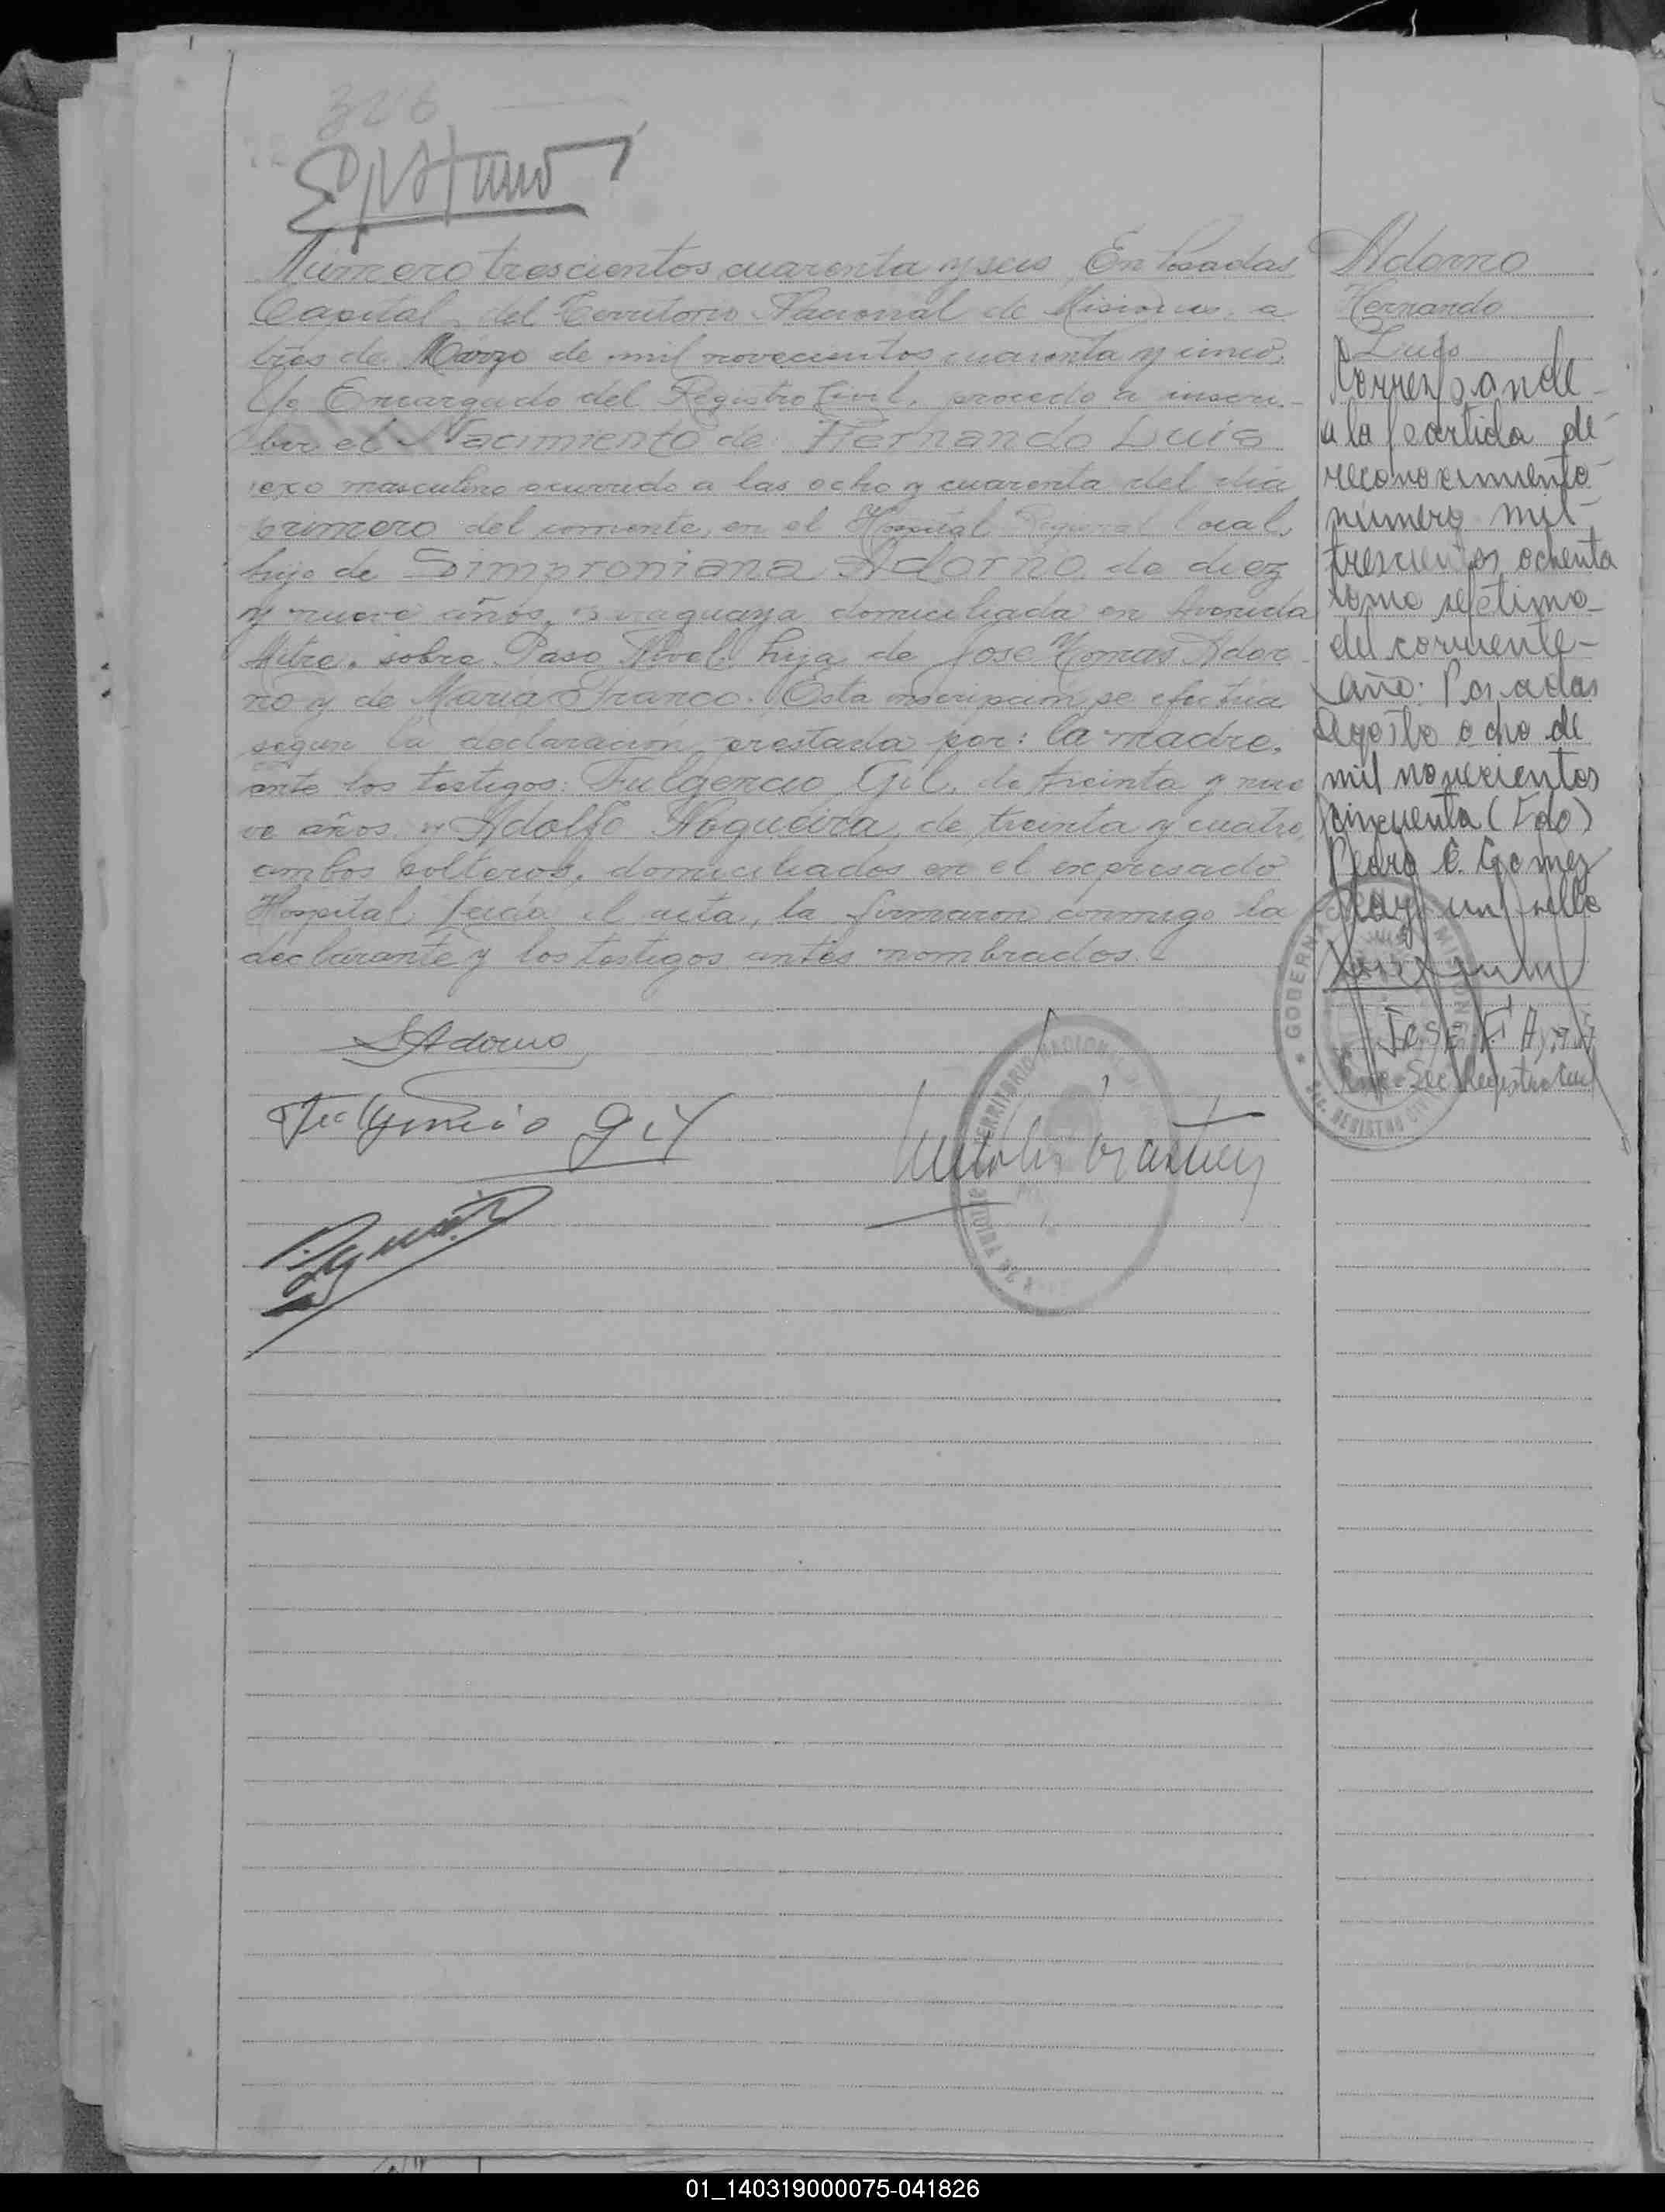 326
Número trescientos cuarenta y seis En Posadas
Capital del Territorio Nacional de Misiones a
tres de Marzo de mil novecientos cuarenta y cinco.
Yo Encargado del Registro Civil, procedo a inscri-
bir el Nacimiento de Hernando Luis
sexo masculino ocurrido a las ocho y cuarenta del día
primero del corriente, en el Hospital Regional local,
hijo de Simproniana Adorno, de diez
y nueve años, paraguaya domiciliada en Avenida
Mitre, sobre Paso Nivel hija de José Tomás Ador-
no y de María Franco. Esta inscripción se efectúa
según la declaración prestada por: la madre,
ante los testigos: Fulgencio Gil, de treinta y nue
ve años y Adolfo Nogueira, de treinta y cuatro,
ambos solteros, domiciliados en el expresado
Hospital, leída el acta, la firmaron conmigo la
declarante y los testigos antes nombrados.
SAdorno
Fulgencio Gil
Adorno
Hernando
Luis
Corresponde
a la partida de
reconocimiento
número mil
trescientos ochenta
tomo sétimo
del corriente-
año. Posadas
Agosto ocho de
mil novecientos
cincuenta (Fdo)
Pedro E. Gomez
Hay un sello
GOBERNA MISIONES
REGISTRO CIVIL
TERRITORIO NACIONAL
01_140319000075-041826